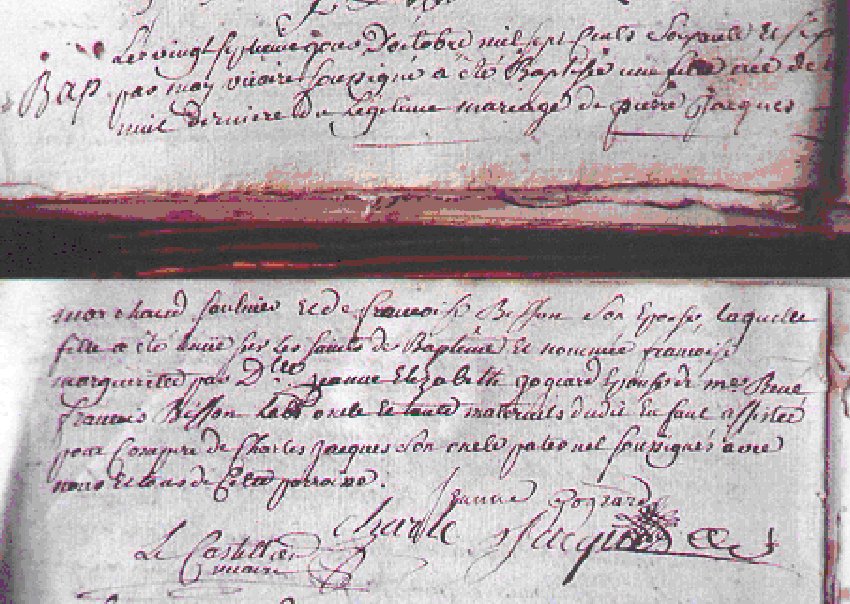 Le vingt septieme jour doctobre mil sept cents soixante et six
Bap par moy vicaire soussigné a été Baptisée une fille née de la
nuit derniere du legitime mariage de pierre Jacques
marchand saulnier et de francoise Bisson son Epouse, laquelle
fille a été tenue sur les saints de Baptême et nommée francoise
margueritte par Dlle jeanne Elizabeth Epouse de me Rene
francois Bisson oncle et tante maternels dudit Enfant assistée
pour Compere de Charles jacques son oncle paternel soussignés avec
nous
jeanne
Charle Jacques
Le Castellier
vicaire